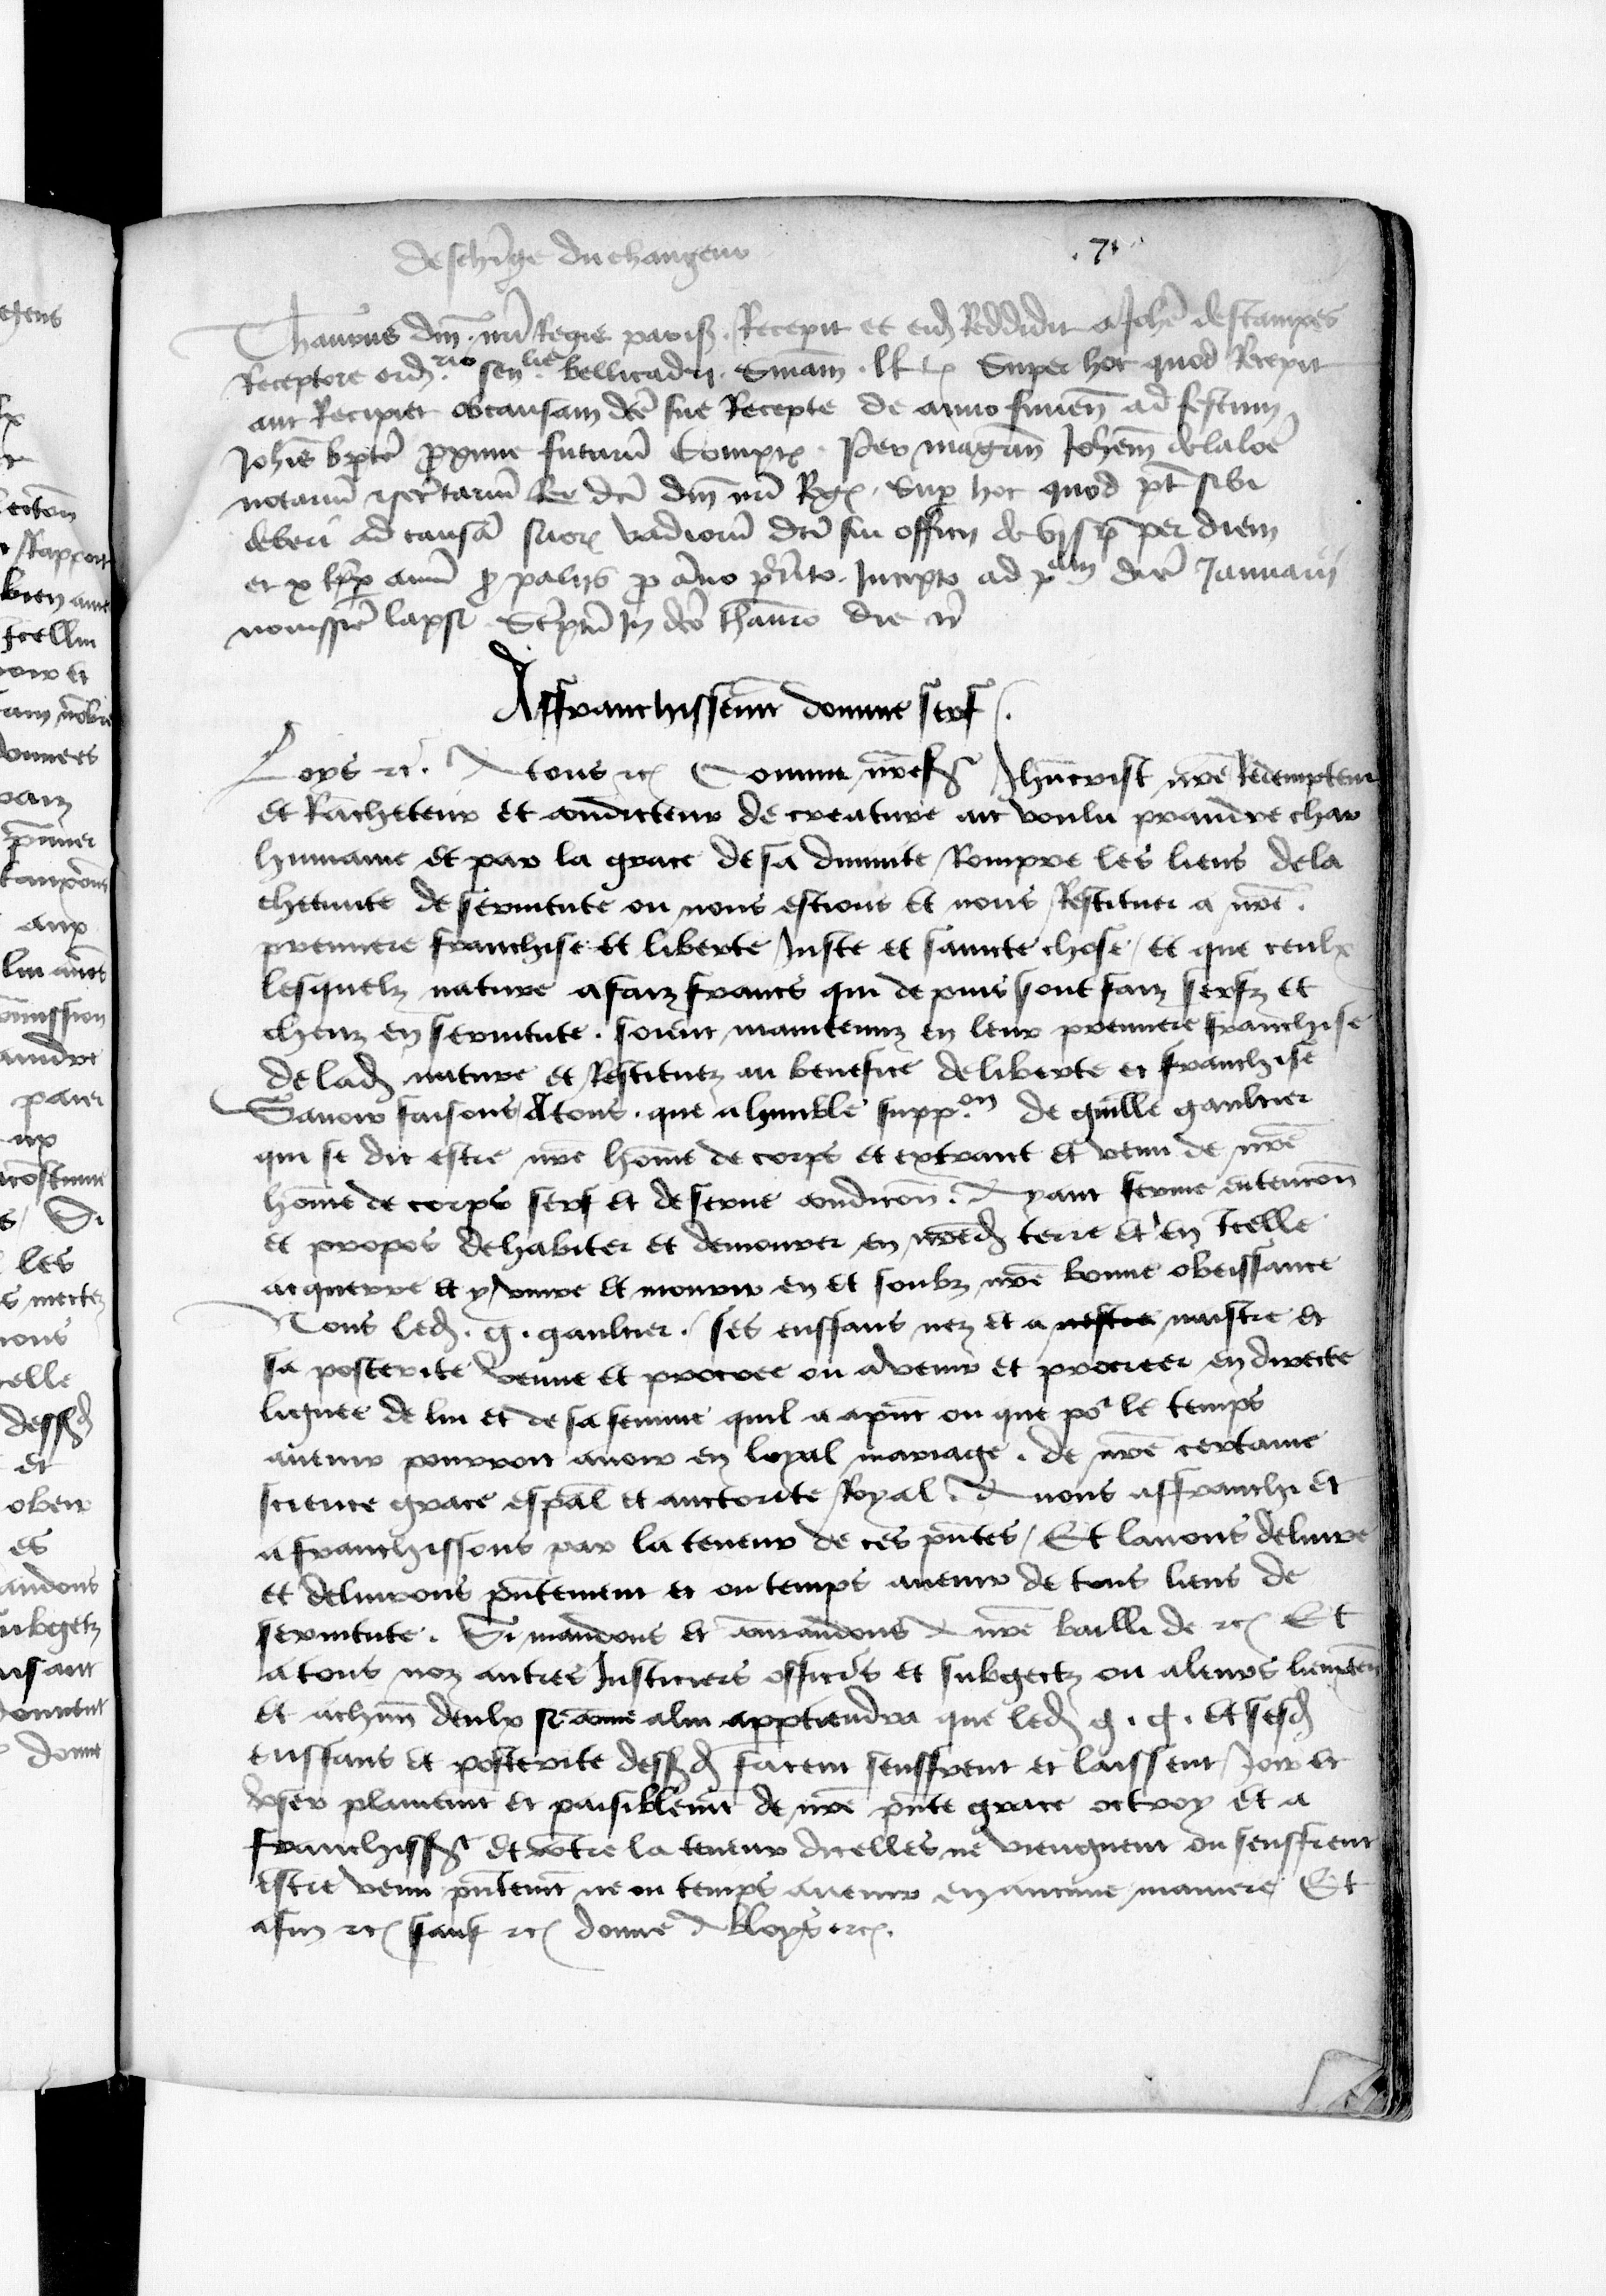 Descharge du changeur
.71.
Thaurus dni nri Regis parisius Recepit et eidem Reddidit a Johe destampes
Receptore ordrio senlie bellicadri Smam lk t Super hoc quod Recepit
aut Recipiet ob causam dce sue Recepte de anno finien ad festum
Johis bpte proxime futurum Comptx per magrm Johem delaloe
notarium et secretarium dci dni nri Regis Sup hoc quod pt sibi
deberi ad causam suorum vadiorum dci sui officii de vj s p per diem
et x l p annu pro palliis pro anno pnto Incepto ad pam diem Januarii
novissie lapsi Scriptum In dco thauro die etc
Affranchissemt domme serf
Loys etc. A tous etc Comme nresr Jhucrist nre Redempteur
et Racheteur et conditeur de creature ait voulu prandre char
humaine et par la grace de sa divinite Rompre les liens de la
chetivite de servitute ou nous estions et nous Restituer a nre
premiere franchise et liberte Juste et saincte chose / et que ceulx
lesquelz nature a faiz francs qui depuis sont faiz serfz et
cheuz en servitute. soient maintenuz en leur premiere franchise
de lad nature et Restituez au benefice de liberte et franchise
Savoir faisons A tous que a humble suppon de guille gaultier
qui se dit estre nre home de corps et extraict et venu de nre
home de corps serf et de serve condicon Ayant ferme intencon
et propos de habiter et demourer en nred terre et en Icelle
acquerre et y vivre et mourir en et soubz nre bonne obeissance
Nous led. g. gaultier. ses enffans nez et a nestre naistre et
sa posterite venue et procree ou avenir et procreer en directe
lignee de lui et de sa femme quil a apnt ou que por le temps
avenir pourroit avoir en loyal mariage. de nre certaine
science grace espal et auctorite Royal. Avons affranchi et
afranchissons par la teneur de ces pntes / Et lavons delivre
et delivrons pntement et ou temps avenir de tous liens de
servitute. Si mandons et comandons A nre bailli de etc Et
a tous noz autres Justiciers officiers et subgectz ou a leurs lieuxten
et achun deulx si come a lui appartiendra que led g. g. et sesd
enffans et posterite dessd facent seuffrent et laissent Joir et
user plainemt et paisiblemt de nre pnte grace octroy et a
franchissemt Et contre la teneur dicelles ne viengnent ou seuffrent
estre venu pntemt ne ou temps avenir en aucune maniere Et
afin etc sauf etc donne A bloys etc.